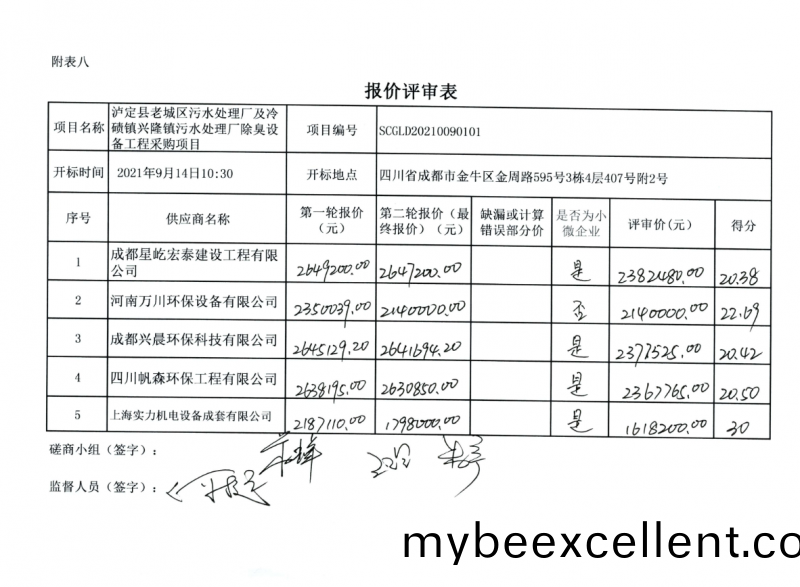 附表八
报价评审表
项目名称 泸定县老城区污水处理厂及冷碛镇兴隆镇污水处理厂除臭设备工程采购项目 项目编号 SCGLD20210090101
开标时间 2021年9月14日10:30 开标地点 四川省成都市金牛区金周路595号3栋4层407号附2号
序号 供应商名称 第一轮报价（元） 第二轮报价（最终报价）（元） 缺漏或计算错误部分价 是否为小微企业 评审价(元) 得分
1 成都星屹宏泰建设工程有限公司 2649200.00 2647200.00 是 2382480.00 20.38
2 河南万川环保设备有限公司 2350039.00 2140000.00 否 2140000.00 22.69
3 成都兴晨环保科技有限公司 2645129.20 2641694.20 是 2377525.00 20.42
4 四川帆森环保工程有限公司 2638195.00 2630850.00 是 2367765.00 20.50
5 上海实力机电设备成套有限公司 2187110.00 1798000.00 是 1618200.00 30
磋商小组（签字）：
监督人员（签字）：
mybeexcellent.co